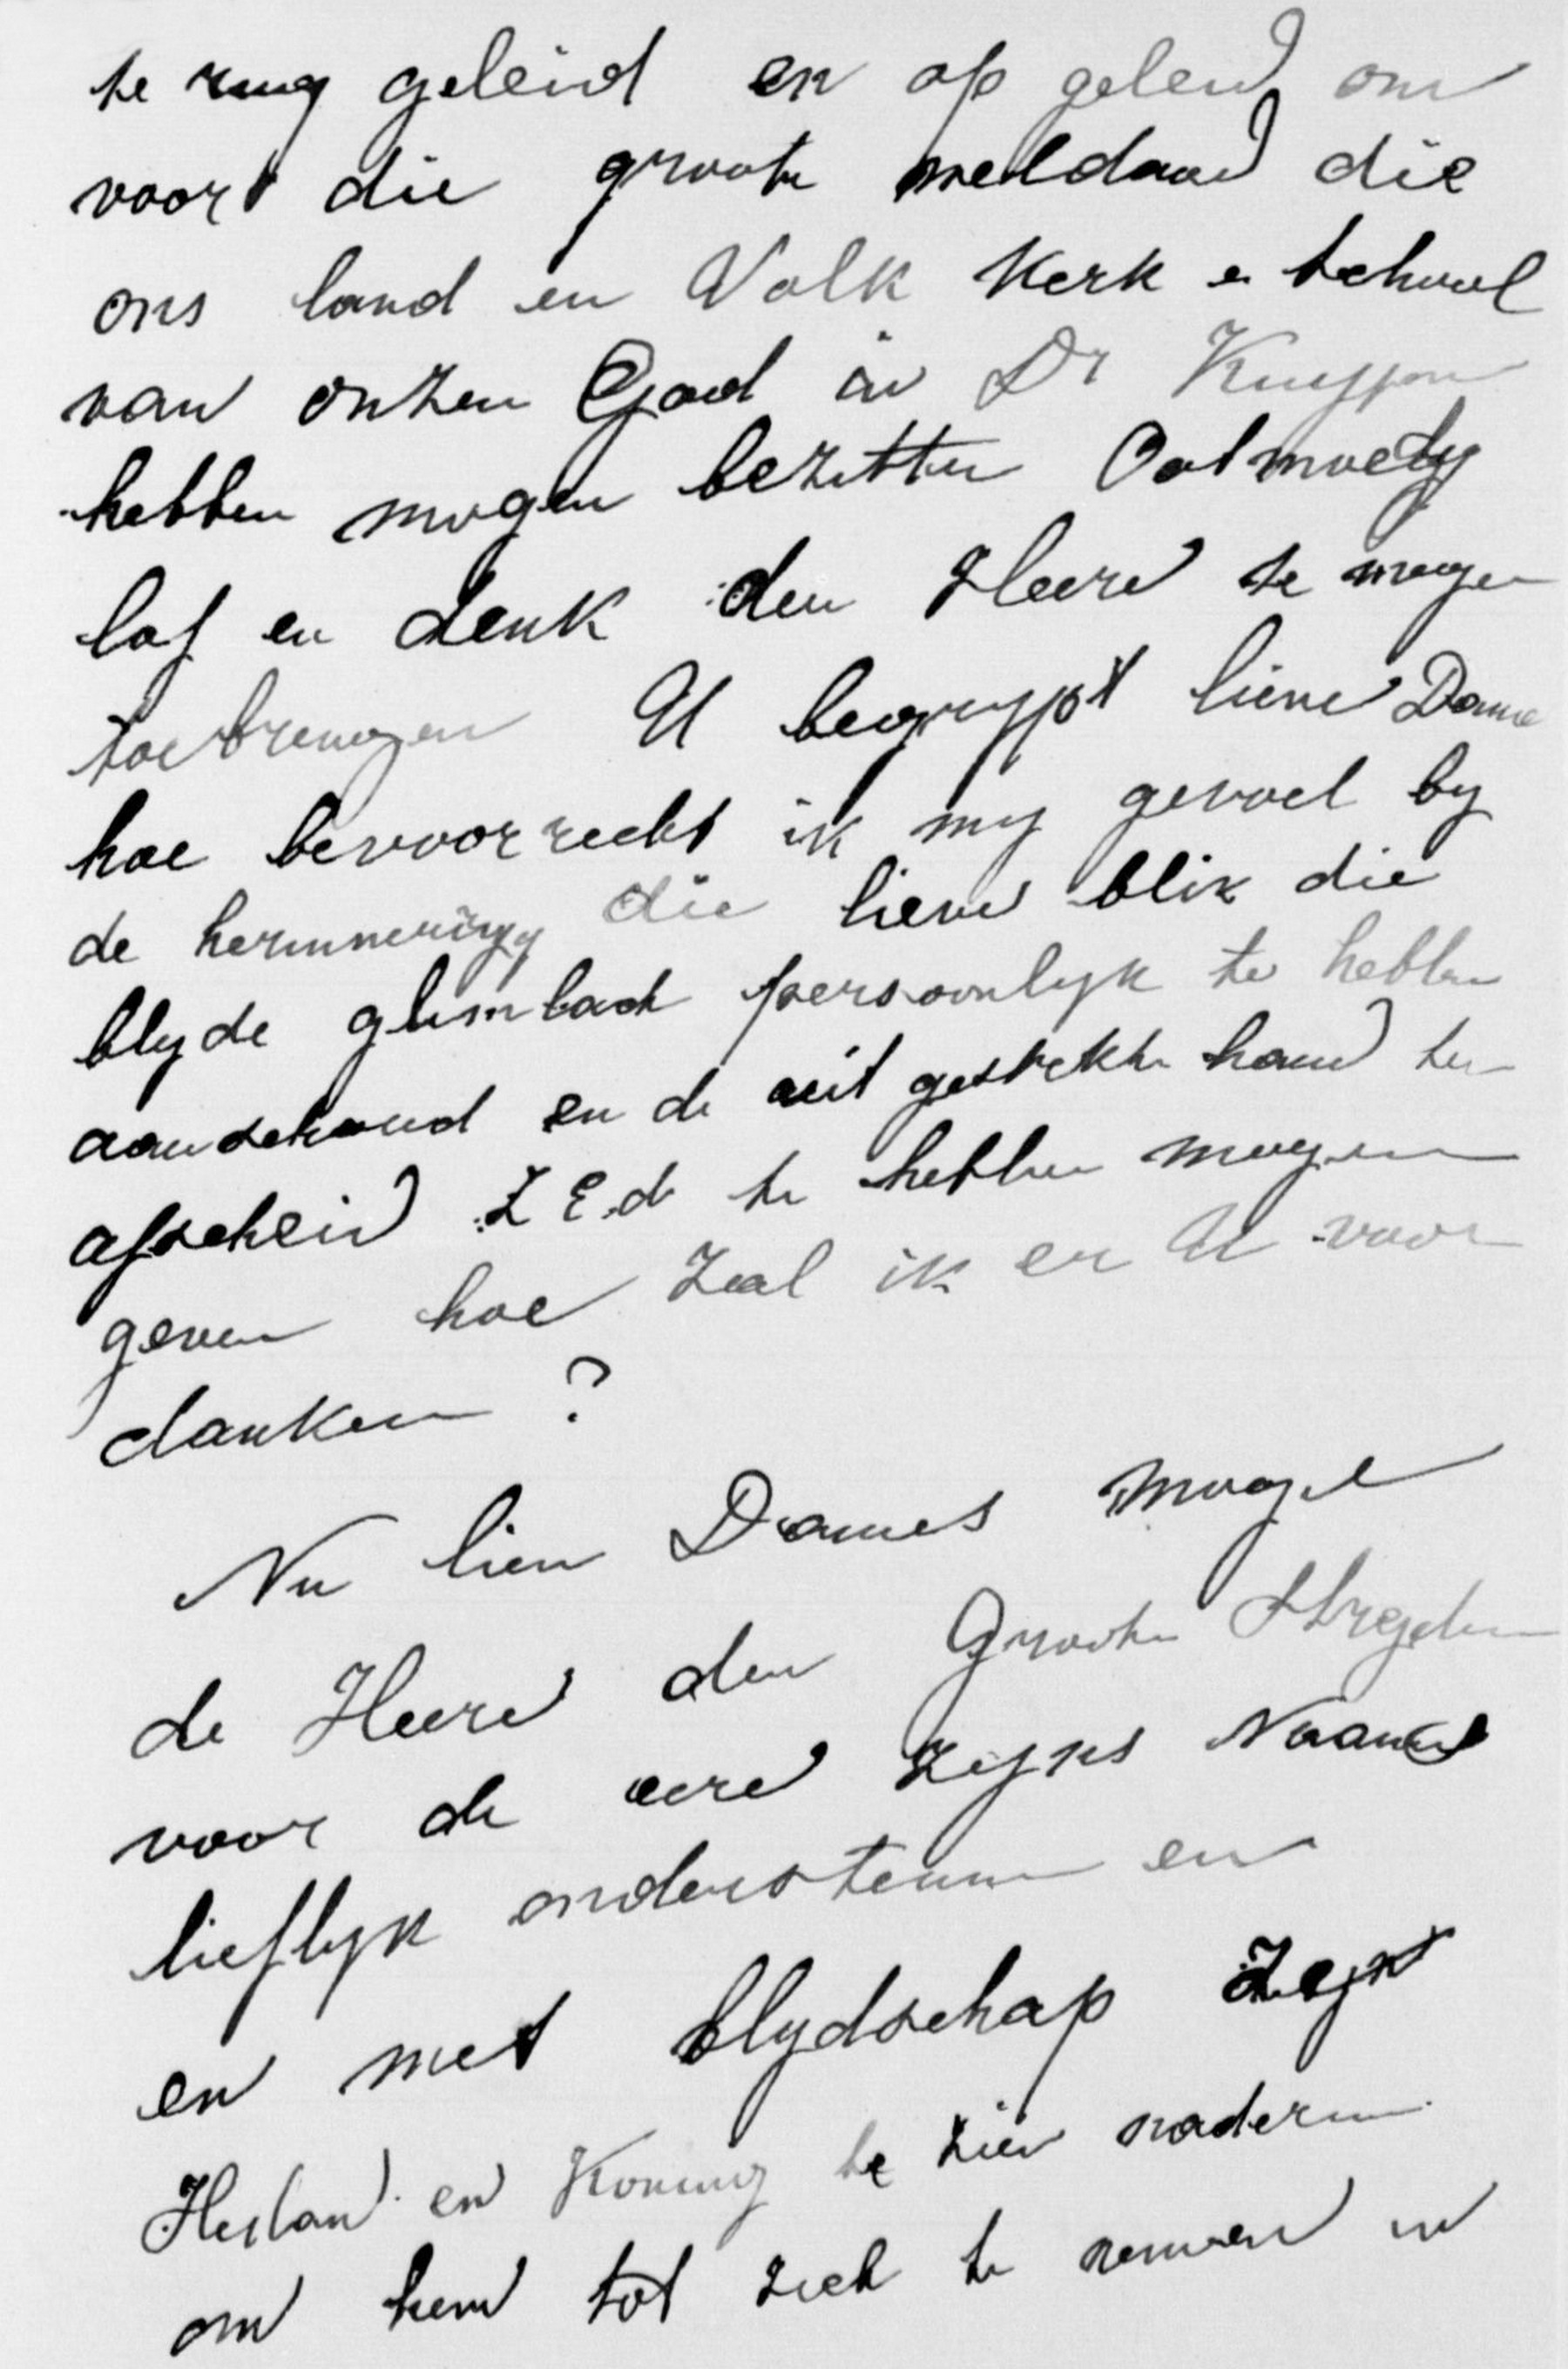 te rug geleid en op geleid om
voor die groote weldaad die
ons land en Volk Kerk e school
van onzen God in Dr Kuyper
hebben mogen bezitten Ootmoedig
lof en dank den Heere te mogen
toebrengen U begrypt lieve Dame
hoe bevoorrecht ik my gevoel by
de herinnering die lieve blik die
blyde glimlach persoonlyk te hebben
aanschoud en de uit gestrekte hand ten
afscheid Z E.d te hebben mogen
geven hoe zal ik er U voor
danken ?
Nu lieve Dames moge
de Heere den Grooten Stryder
voor de eere zyns Naams
lieflyk ondersteunen en
en met blydschap zyn
Heiland en Koning te zien naderen
om hem tot zich te nemen in